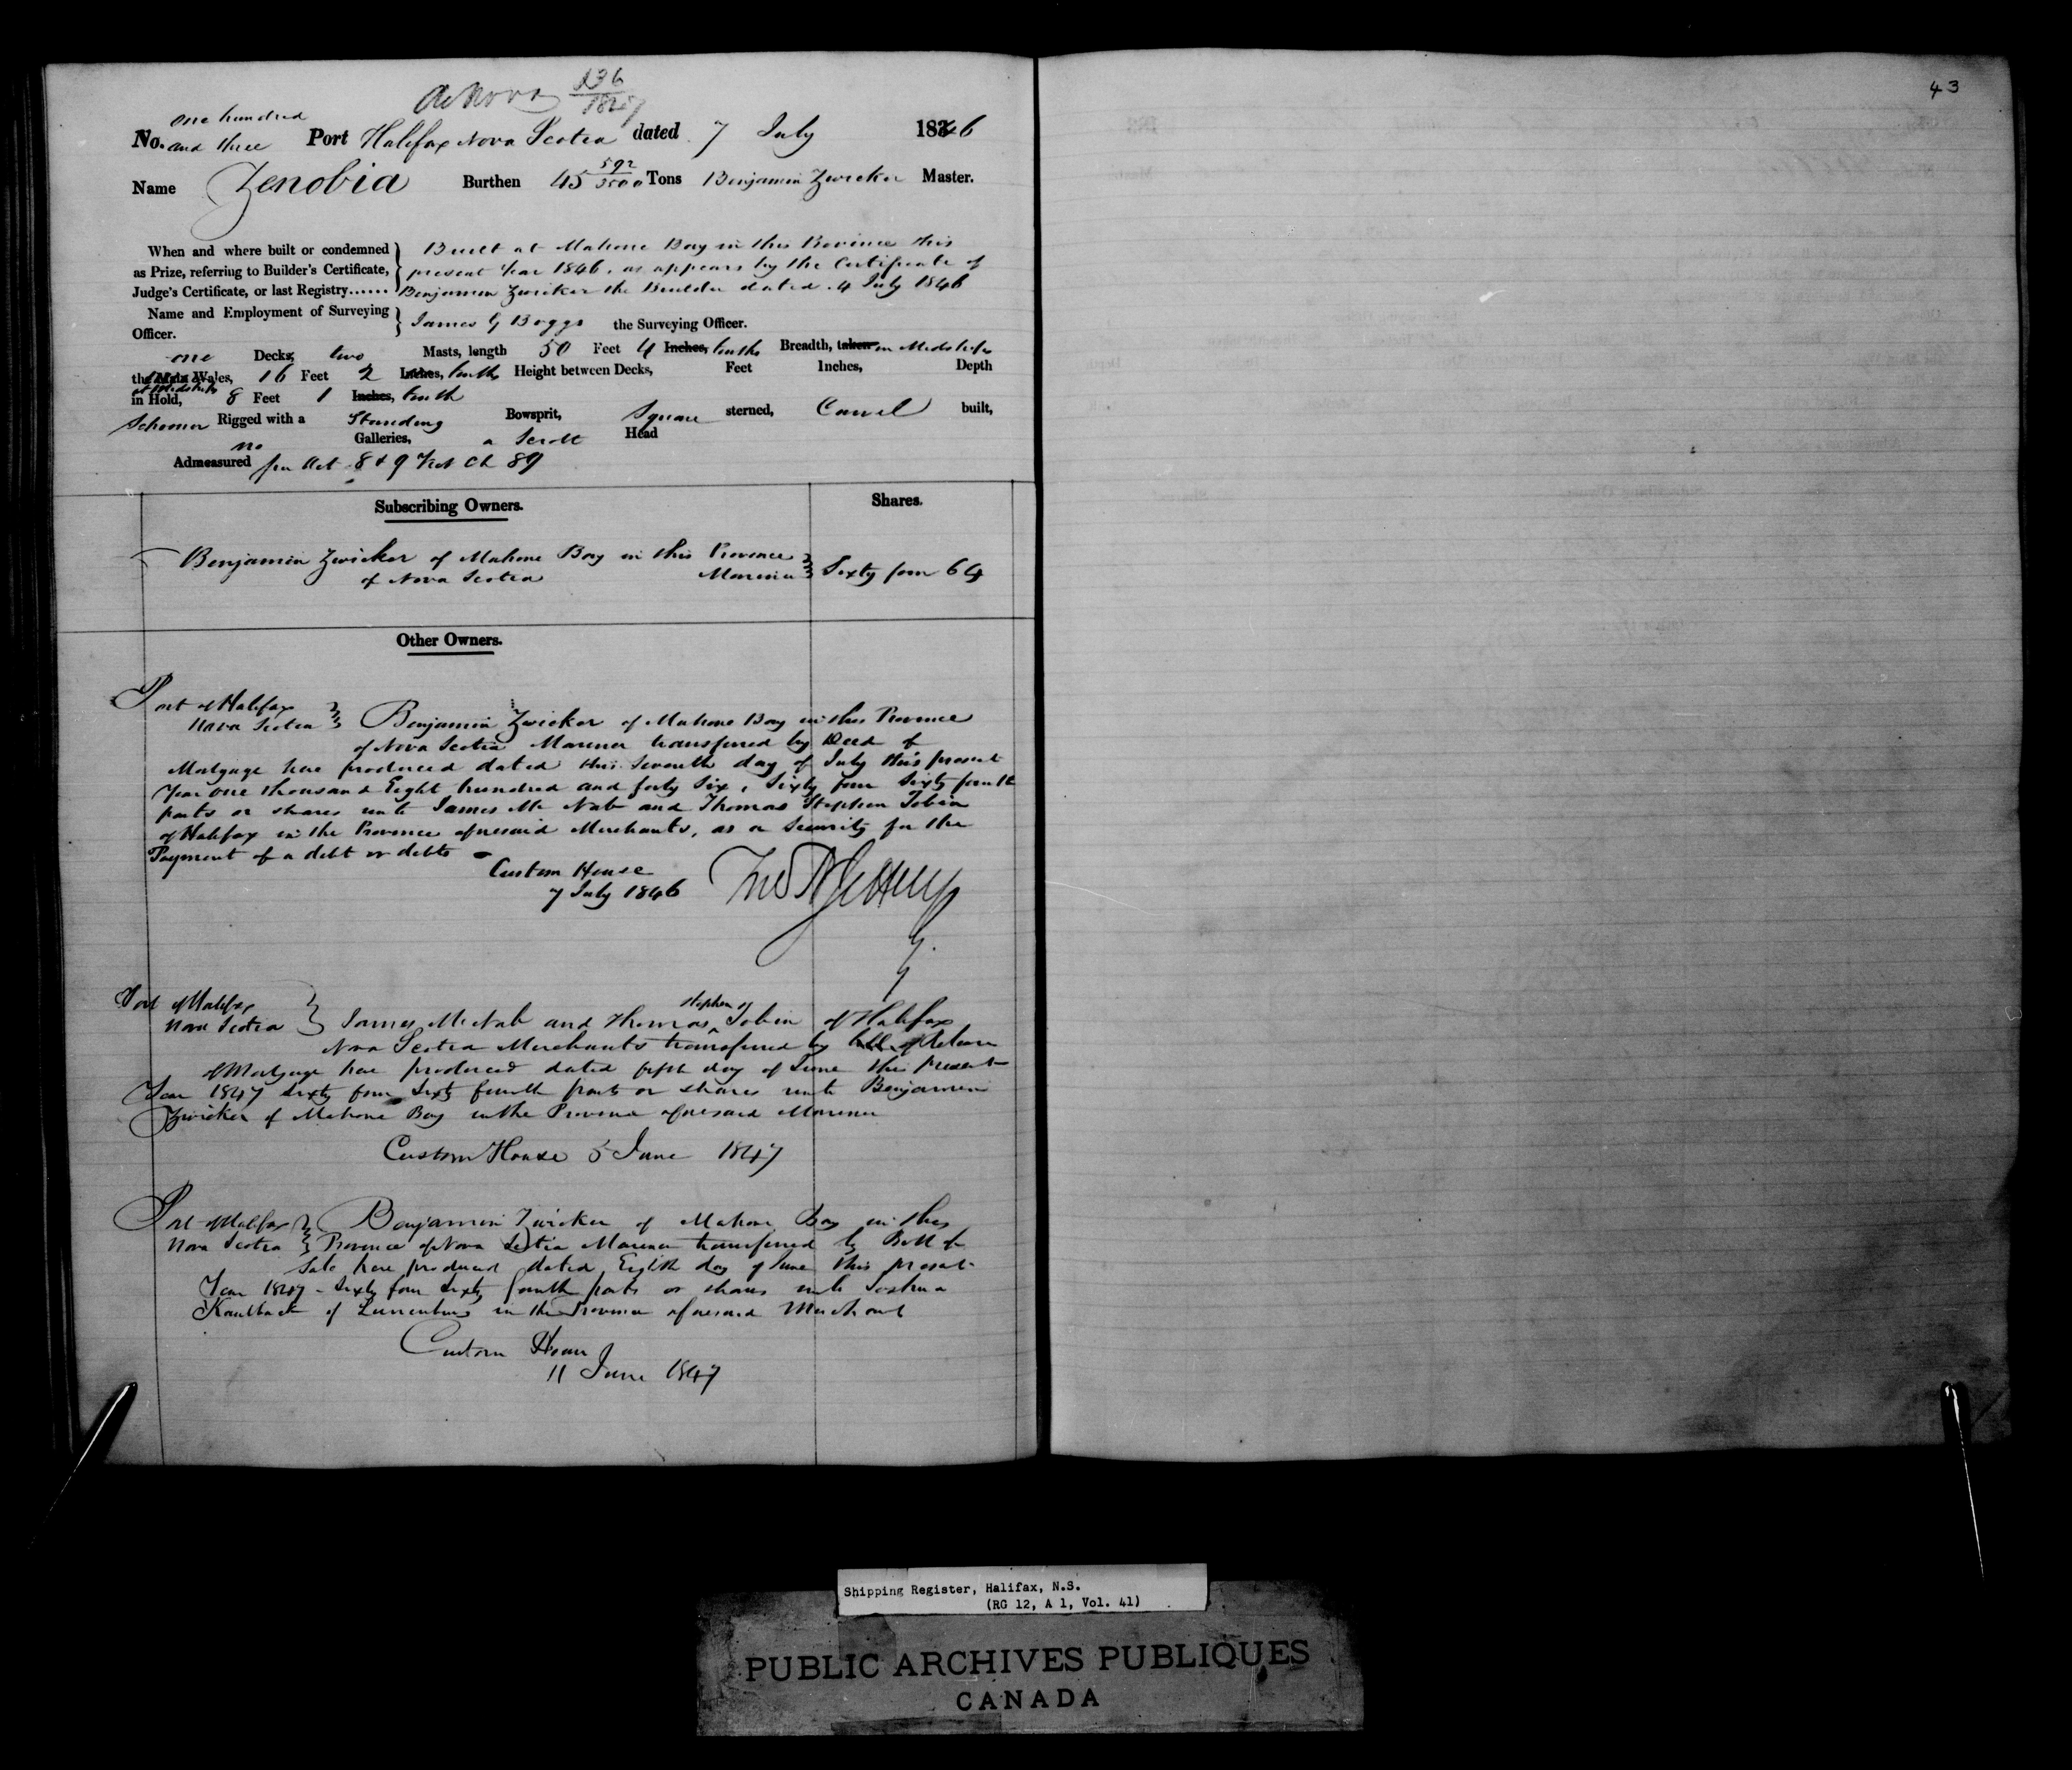 De Novo 136/1847
43
one hundred
No. and three Port Halifax Nova Scotia dated 7 July 1846
Name Zenobia Burthen 45 592/3500 Tons Benjamin Zwicker Master.
When and where built or condemned
as Prize, referring to Builder's Certificate,
Judge's Certificate, or last Registry......
Built at Mahone Bay in this Province this
present Year 1846, as appears by the Certificate of
Benjamin Zwicker the Builder dated 4 July 1846
Name and Employment of Surveying
Officer.
James G Boggs the Surveying Officer.
one Decks, two Masts, length 50 Feet 4 Inches, tenths Breadth, taken in Midships
the Main Wales, 16 Feet 2 Inches, tenths Height between Decks, Feet Inches, Depth
at Midships
in Hold, 8 Feet 1 Inches, tenth
Schooner Rigged with a Standing Bowsprit, Square sterned, Carvel built,
no Galleries, a Scroll Head
Admeasured per Act 8 & 9 Vict Ch 89
Subscribing Owners. Shares.
Benjamin Zwicker of Mahone Bay in this Province
of Nova Scotia Mariner Sixty four 64
Other Owners.
Port of Halifax
Nova Scotia Benjamin Zwicker of Mahone Bay in this Province
of Nova Scotia Mariner transferred by Deed of
Mortgage here produced dated this Seventh day of July this present
Year one thousand Eight hundred and forty Six, Sixty four Sixty fourth
parts or shares unto James Mc Nab and Thomas Stephen Tobin
of Halifax in the Province aforesaid Merchants, as a Security for the
Payment of a debt or debts
Custom House
7 July 1846
Port of Halifax
Nova Scotia James McNab and Thomas Stephen Tobin of Halifax
Nova Scotia Merchants transferred by of Release
of Mortgage here produced dated fifth day of June this present
Year 1847 Sixty four Sixty fourth parts or shares unto Benjamin
Zwicker of Mahone Bay in the Province aforesaid Mariner
Custom House 5 June 1847
Port of Halifax Benjamin Zwicker of Mahone Bay in this
Nova Scotia Province of Nova Scotia Mariner transferred by Bill of
Sale here produced dated Eighth day of June this present
Year 1847 - Sixty four Sixty fourth parts or shares unto Joshua
Kaulback of Lunenburg in the Province aforesaid Merchant
Custom House
11 June 1847
Shipping Register, Halifax, N.S.
(RG 12, A 1, Vol. 41)
PUBLIC ARCHIVES PUBLIQUES
CANADA